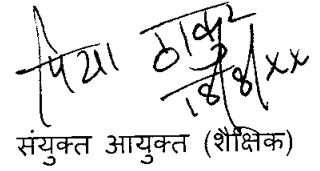 प्रिया ठाकुर
18/8/xx
संयुक्त आयुक्त (शैक्षिक)